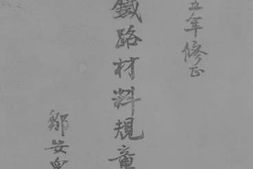 五年修正
鐵路材料規章
鄒安